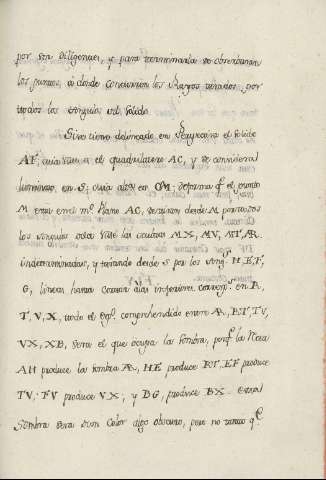 por sus diligencias, y para terminarla se observaran
los puntos, a donde concurran los Rayos tirados por
todos los angulos del solido
Si se tiene delineado en Perspectiva el solido
AF, cuia vase es el quadrilatero AC, y se considera el
luminoso en S, cuia altª es SM; de forma qᵉ el punto
M este en el mº Plano AC, se tiraran desde M por todos
los angulos de la vase las occultas MX, MV, MT, AR.
indeterminadas, y tirando desde S por los angˢ H, E, F,
G, lineas hasta cortar a las inferiores convengˢ en R,
T, V, X, todo el espº comprehendido entre AR, RT, TV,
VX, XB, sera el que ocupa la sombra, porqᵉ la Recta
AH produce la sombra AR, HE produce RT, EF produce
TV; FV produce VX, y BG, produce BX. Esta
sombra sera de un color algo obscuro, pero no tanto qᵉ